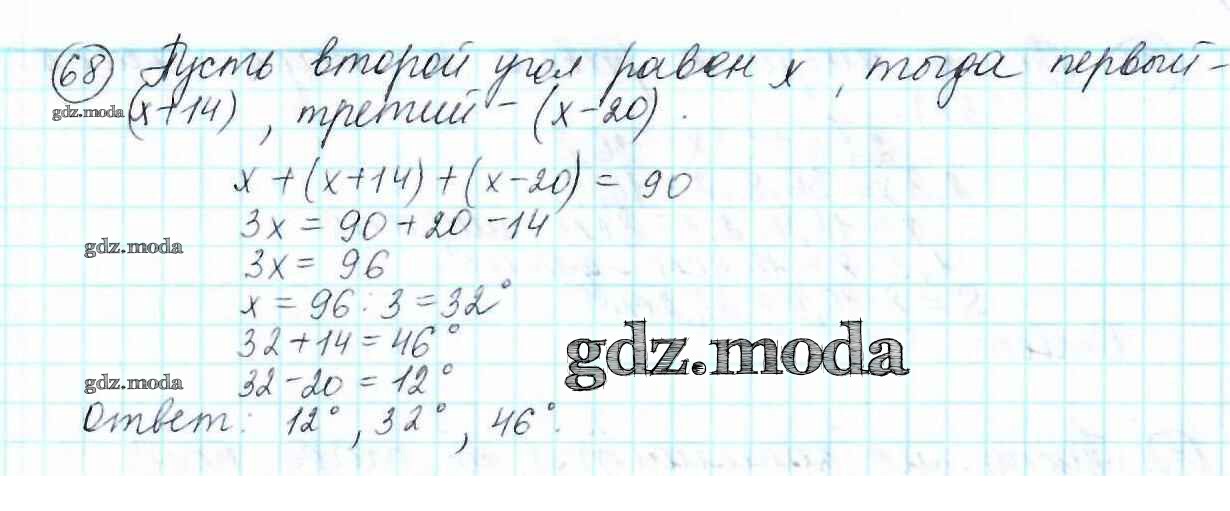 68 Пусть второй угол равен x, тогда первый -
gdz.moda (x+14), третий - (x-20).
x + (x+14) + (x-20) = 90
3x = 90 + 20 - 14
gdz.moda
3x = 96
x = 96 : 3 = 32°
32 + 14 = 46°
gdz.moda
gdz.moda 32 - 20 = 12°
Ответ: 12°, 32°, 46°.